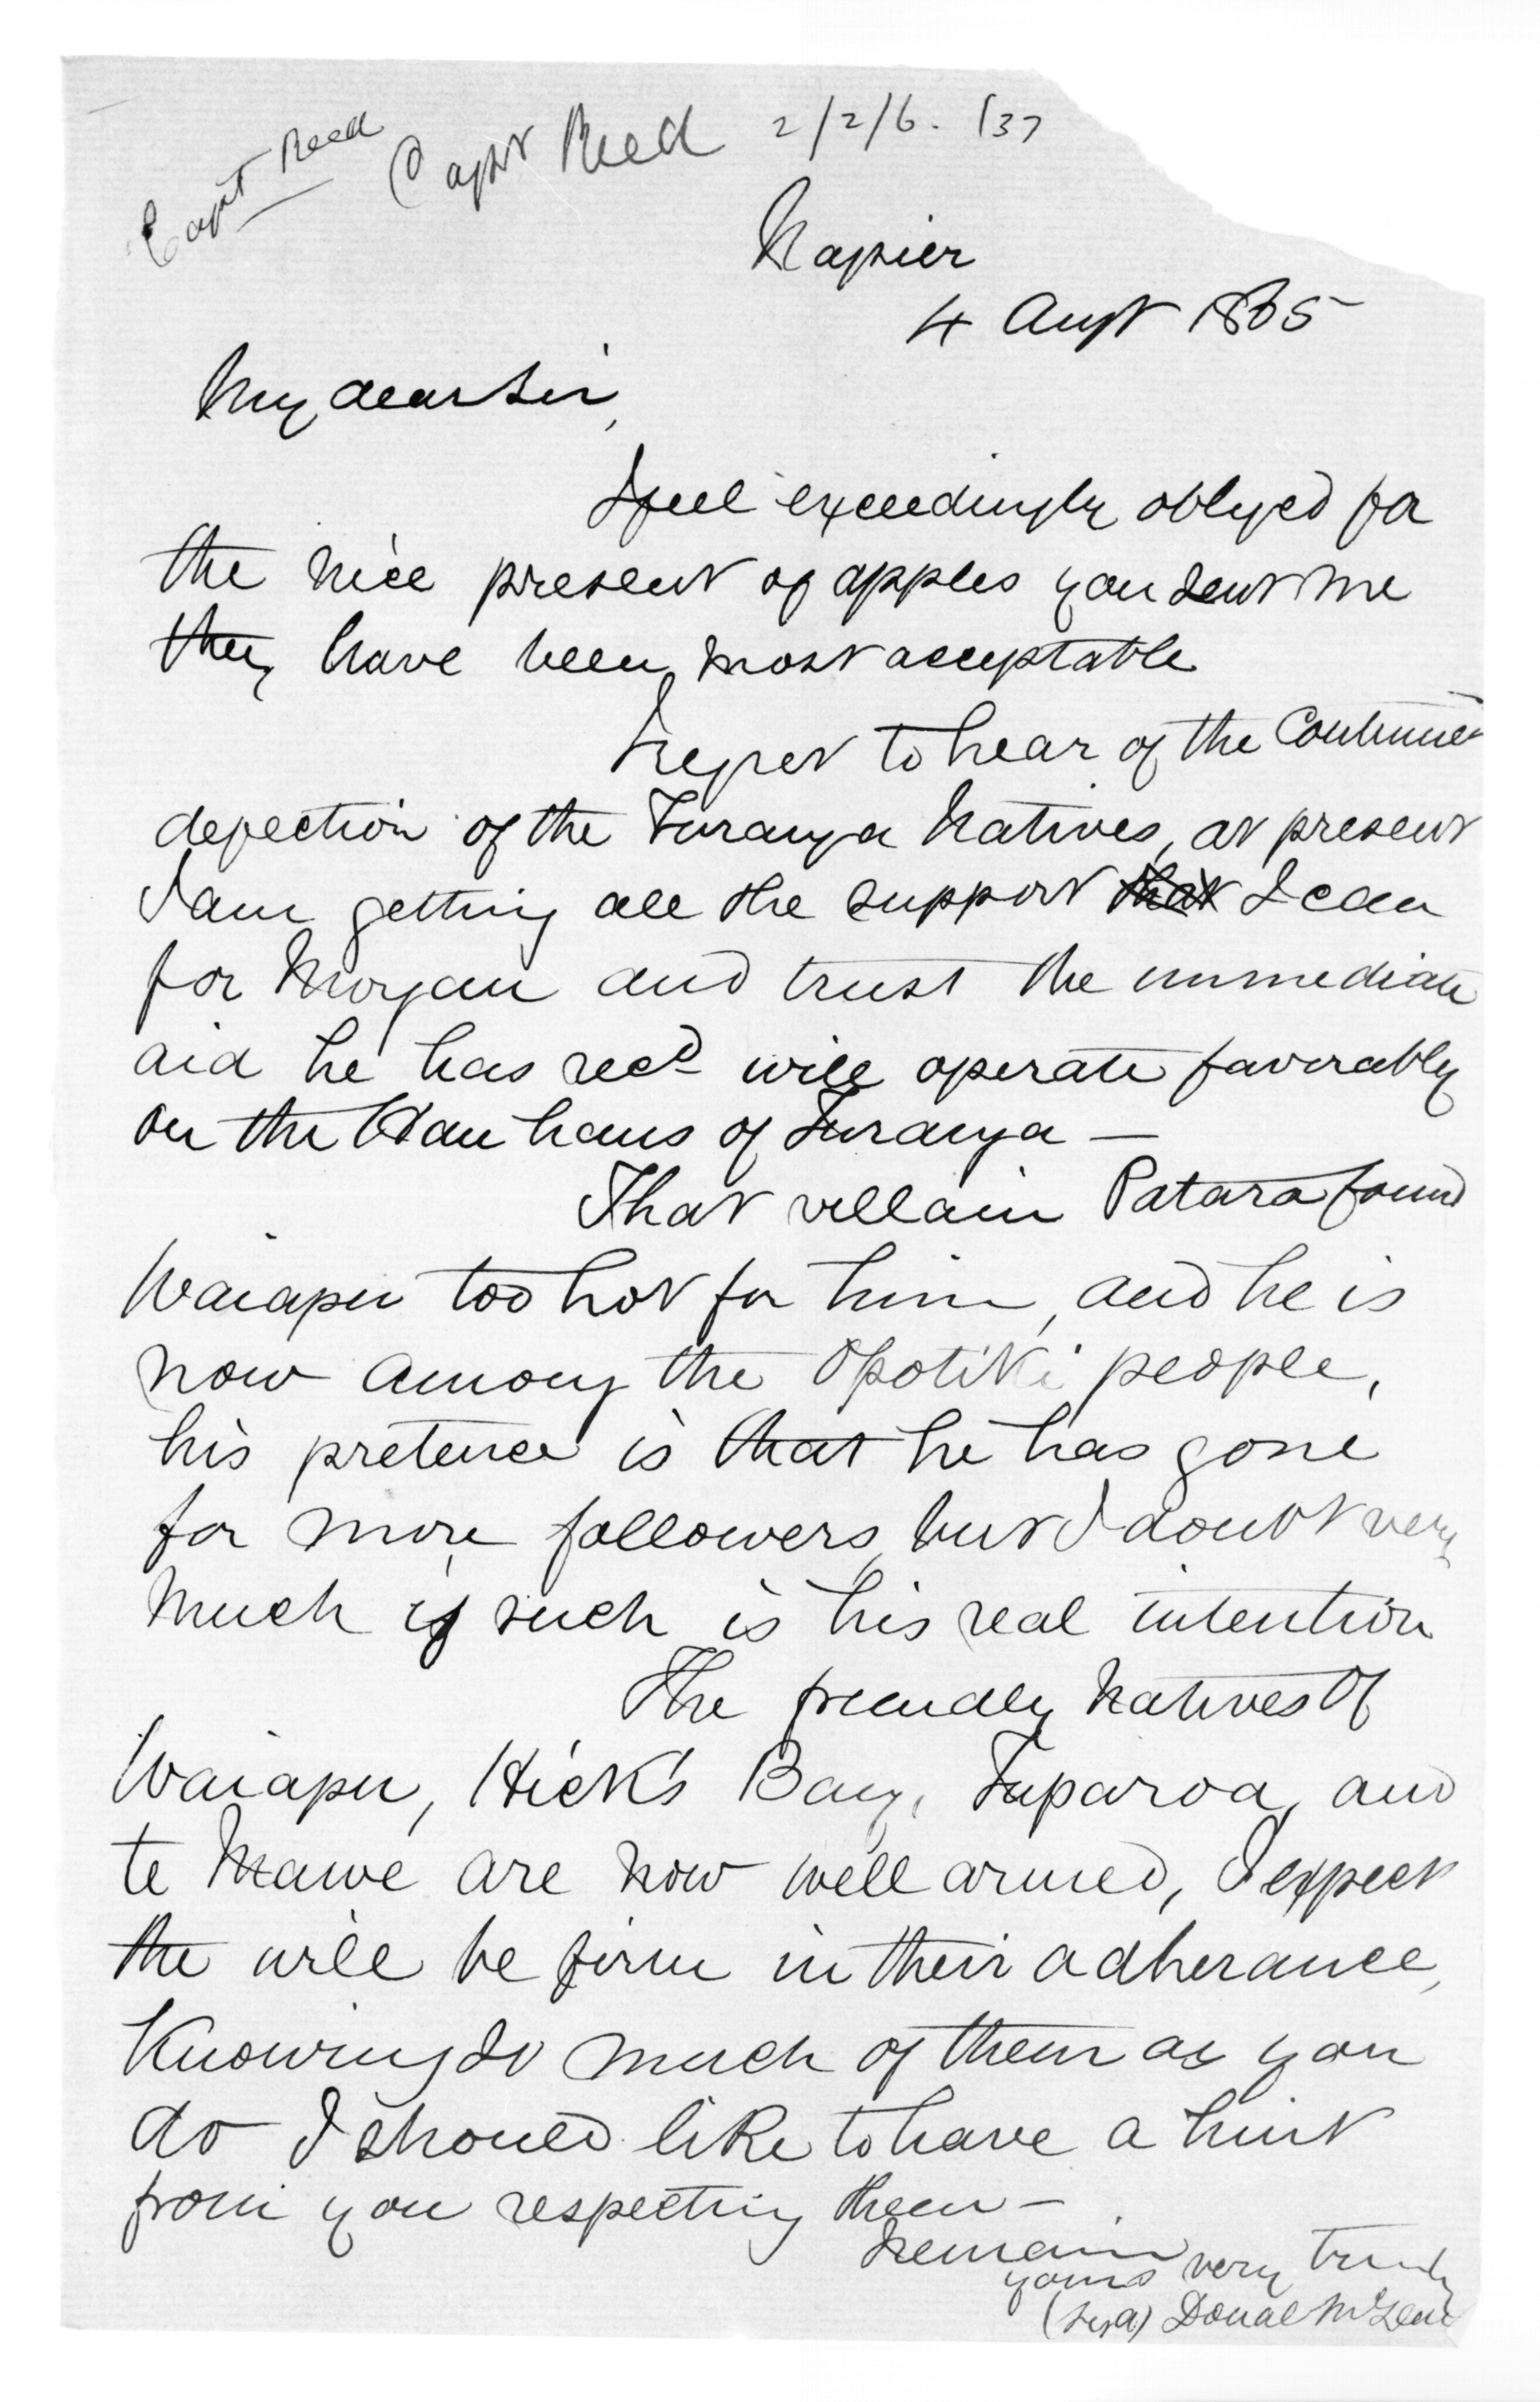 Capt Reed
Capt Reed 2/2/6. 137
Napier
4 Augt 1865
My dear Sir,
I feel exceedingly obliged for
the nice present of apples you sent me
they have been most acceptable
I regret to hear of the Continued
defection of the Turanga Natives, at present
I am getting all the support that I can
for Morgan and trust the immediate
aid he has recd will operate favorably
on the Hau haus of Turanga —
That villain Patara found
Waiapu too hot for him, and he is
now among the Opotiki people,
his pretence is that he has gone
for more followers, but I doubt very
much if such is his real intention
The friendly Natives of
Waiapu, Hick's Bay, Tuparoa, and
te Mawe are now well armed, I expect
the will be firm in their adherance,
Knowing so much of them as you
do I should like to have a hint
from you respecting them —
I remain very truly
yours
(Sigd) Donal McLean